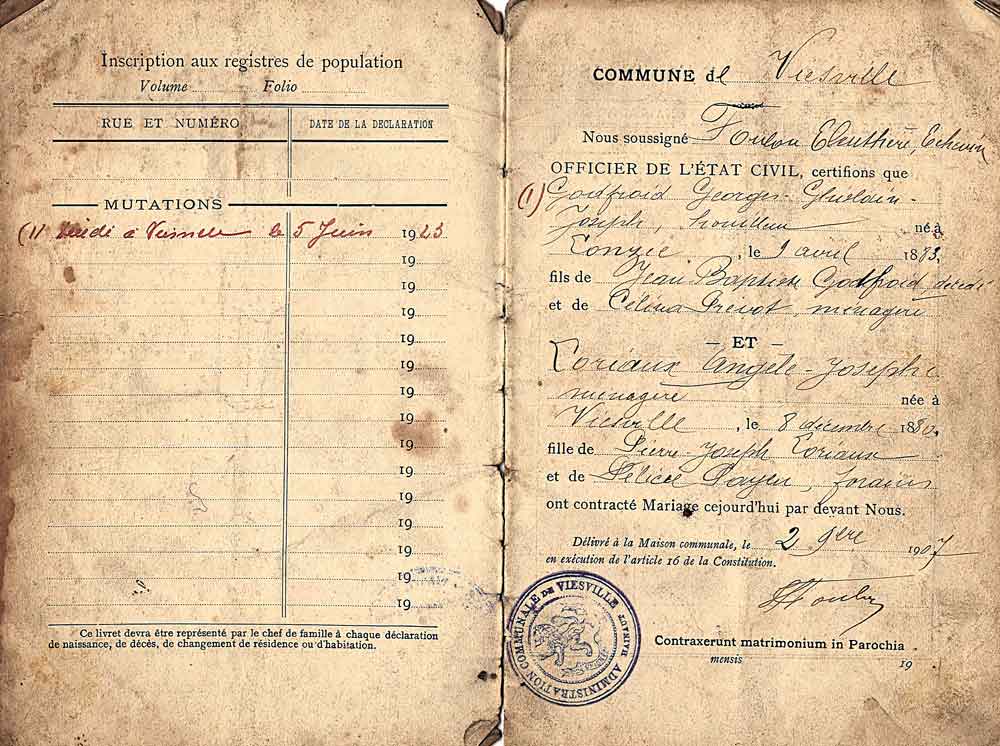 Inscription aux registres de population
Volume Folio
RUE ET NUMÉRO DATE DE LA DÉCLARATION
MUTATIONS
(1) à le 5 Juin 1923
19
19
19
19
19
19
19
19
19
19
19
19
19
19
Ce livret devra être représenté par le chef de famille à chaque déclaration
de naissance, de décès, de changement de résidence ou d'habitation.
COMMUNE de Viesville
Nous soussigné Foulon Eleuthère, Echevin
OFFICIER DE L'ÉTAT CIVIL, certifions que
(1) Godfroid Georges-Ghislain-
Joseph, houilleur né à
, le 9 avril 1883,
fils de Jean Baptiste Godfroid, décédé
et de Célina Prévot, ménagère
— ET —
Loriaux Angèle-Josephe
ménagère née à
Viesville, le 8 décembre 1880,
fille de Pierre-Joseph Loriaux
et de Félicie Payen,
ont contracté Mariage cejourd'hui par devant Nous.
Délivré à la Maison communale, le 2 9bre 1907
en exécution de l'article 16 de la Constitution.
ADMINISTRATION COMMUNALE DE VIESVILLE HAINAUT
Contraxerunt matrimonium in Parochia
mensis 19